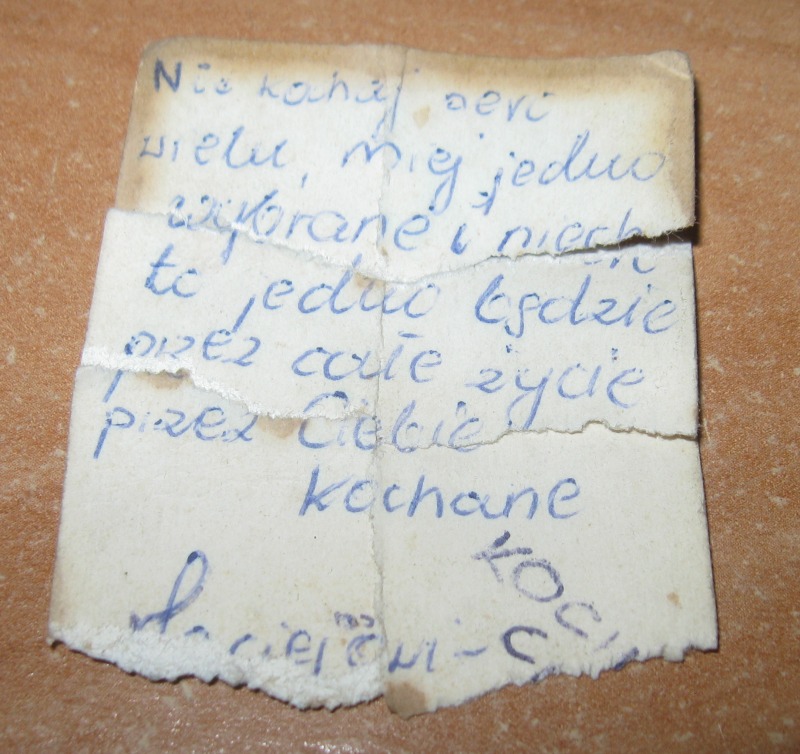 Nie kochaj serc
wielu, miej jedno
wybrane i niech
to jedno będzie
przez całe życie
przez Ciebie
kochane